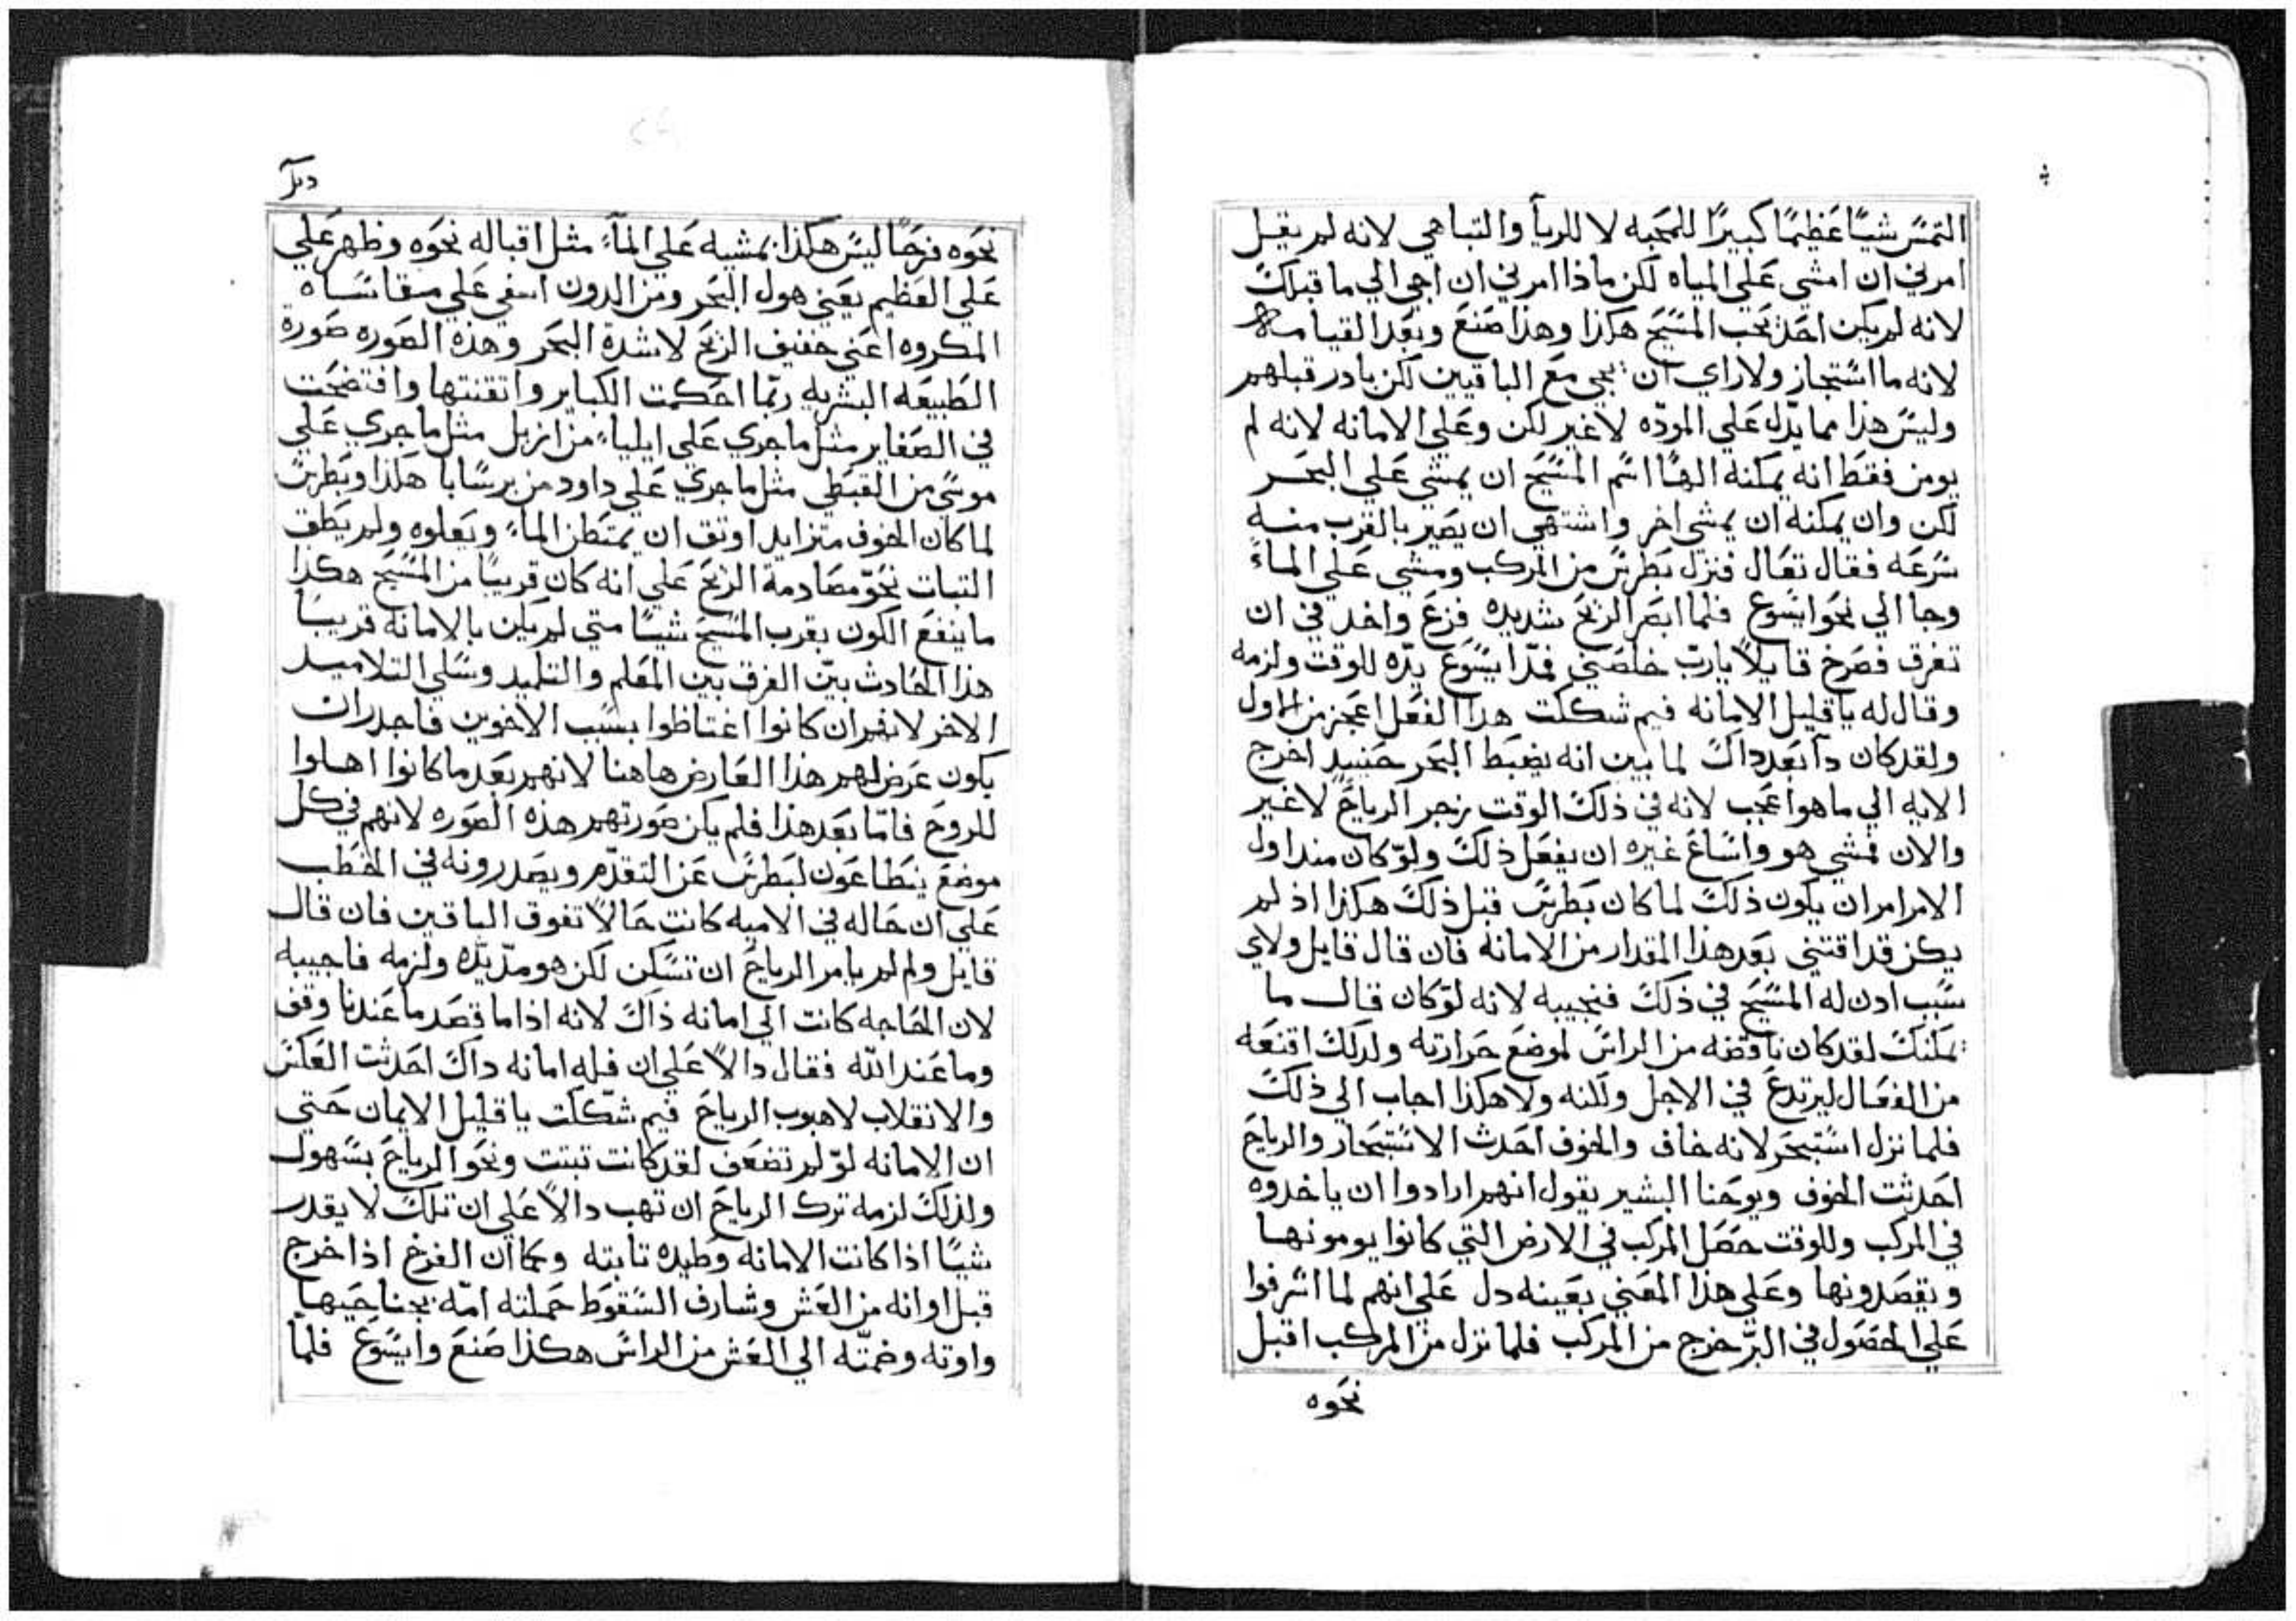 التمس شيًا عظيمًا كبيرًا للمحبه لا للريآ والتباهي لانه لم يقل
امرني ان امشي علي المياه لكن ماذا امرني ان اجي الي ما قبلك
لانه لم يكن احد يحب المسيح هكذا وهذا صنع وبعد القيامه
لانه ما استجاز ولا راي ان يجي مع الباقيين لكن بادر قبلهم
وليس هذا مما يدل علي الموده لا غير لكن وعلي الامانه لانه لم
يومن فقط انه يمكنه المسيح ان يمشي علي البحر
لكن وان يمكنه ان يمشي اخر واشتهي ان يصير بالقرب منه
سرعه فقال تعال فنزل بطرس من المركب ومشي علي الماء
وجا الي نحو ايسوع فلما ابصر الريح شديده فزع واخد في ان
تغرق فصرخ قايلاً يارب خلصني فمدّ ايسوع يدّه للوقت ولزمه
وقال له يا قليل الامانه فيم شككت هدا الفعل اعجز من الاول
ولقد كان دا بعد داك لما بين انه يضبط البحر حنييد اخرج
الايه الي ما هوا عجب لانه في ذلك الوقت زجر الرياح لا غير
والان فمشي هو واساغ غيره ان يفعل ذلك ولوّ كان مند اول
الامر امر ان يكون ذلك لما كان بطرس قبل ذلك هكذا اذ لم
يكن قد اقتني بعد هذا المقدار من الامانه فان قال قايل ولاي
سبب ادن له المسيح في ذلك فنجيبه لانه لوّ كان قال ما
يمكنك لقد كان ناقضه من الراس لموضع حرارته ولدلك اقنعه
من الفعال ليرتدع في الاجل ولكنه ولا هكذا اجاب الي ذلك
فلما نزل استبحر لانه خاف والخوف احدث الاستبحار والرياح
احدثت الخوف ويوحنا البشير يقول انهم ارادوا ان ياخدوه
في المركب وللوقت حصل المركب في الارض التي كانوا يومونها
ويقصدونها وعلي هذا المعني بعينه دل علي انهم لما اشرفوا
علي الحصول في البرّ خرج من المركب فلما نزل من المركب اقبل
نحوه
نحوه فرحًا ليس هكذا بمشيه علي المآء مثل اقباله نحوه وظهر علي
علي العظيم يعني هول البحر ومن الدون اسفي علي مقاساه
المكروه اعني حفيف الريح لا شدة البحر وهذه الصوره صورة
الطبيعه البشريه ربّما احكمت الكباير واتقنتها وافتضحت
في الصغاير مثل ما جري علي ايلياء من ازبل مثل ما جري علي
موسي من القبطي مثل ما جري علي داود من برسابا هكذا وبطرس
لما كان الخوف متزايد اوثق ان يمتطن الماء ويعلوه ولم يطق
التبات نحوّ مصادمة الريح علي انه كان قريبًا من المسيح هكذا
ما ينفع الكون بقرب المسيح شيًا متي لم يكن بالامانه قريبًا
هذا الحادث بيّن الفرق بين المعلم والتلميد وسلي التلاميد
الاخر لانهم ان كانوا اغتاظوا بسبب الاخوين فاجدر ان
يكون عرض لهم هذا العارض هاهنا لانهم بعد ما كانوا اهلوا
للروح فامّا بعد هذا فلم يكن صورتهم هذه الصوره لانهم في كل
موضع يتطاعون لبطرس عن التقدّم ويصدرونه في الخطب
علي ان حاله في الاميه كانت حالاً تفوق الباقين فان قال
قايل ولم لم يامر الرياح ان تسكن لكن هو مدّ يدّه ولزمه فاجيبه
لان الحاجه كانت الي امانه ذاك لانه اذا ما قصد ما عندنا وقف
وما عند الله فقال دالاً علي ان قله امانه داك احدثت العكس
والانقلاب لا هبوب الرياح فيم شككت يا قليل الايمان حتي
ان الامانه لوّ لم تضعف لقد كانت تبتت ونحو الرياح بسهول
ولذلك لزمه ترك الرياح ان تهب دالاً علي ان تلك لا يقدر
شيًا اذا كانت الامانه وطيده تابته وكما ان الفرخ اذا خرج
قبل اوانه من العش وشارف السقوط حملته امّه بجناحيها
واوته وضمتّه الي العش من الراس هكذا صنع وايسوع فلمّا